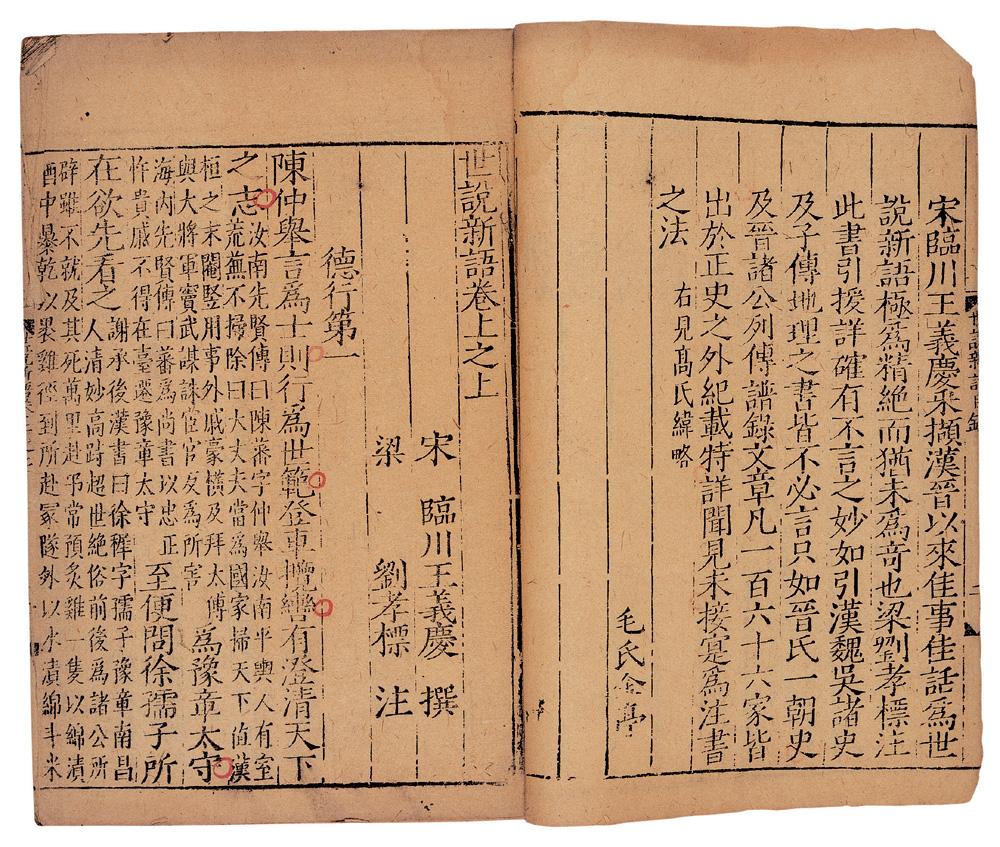 宋臨川王義慶采擷漢晉以來佳事佳話爲世
說新語極爲精絕而猶未爲奇也梁劉孝標注
此書引援詳確有不言之妙如引漢魏吳諸史
及子傳地理之書皆不必言只如晉氏一朝史
及晉諸公列傳譜錄文章凡一百六十六家皆
出於正史之外紀載特詳聞見未接寔爲注書
之法　右見高氏緯略
毛氏金亭
世說新語卷上之上
宋　臨川王義慶　撰
梁　劉孝標　注
德行第一
陳仲舉言爲士則行爲世範登車攬轡有澄清天下
之志
汝南先賢傳曰陳蕃字仲舉汝南平輿人有室
荒蕪不掃除曰大丈夫當爲國家掃天下值漢
桓之末閹豎用事外戚豪橫及拜太傅
與大將軍竇武謀誅宦官反爲所害
爲豫章太守
海內先賢傳曰蕃爲尚書以忠正
忤貴戚不得在臺遷豫章太守
至便問徐孺子所
在欲先看之
謝承後漢書曰徐穉字孺子豫章南昌
人清妙高跱超世絕俗前後爲諸公所
辟雖不就及其死萬里赴弔常預炙雞一隻以綿漬
酒中暴乾以裹雞徑到所赴冢隧外以水漬綿斗米